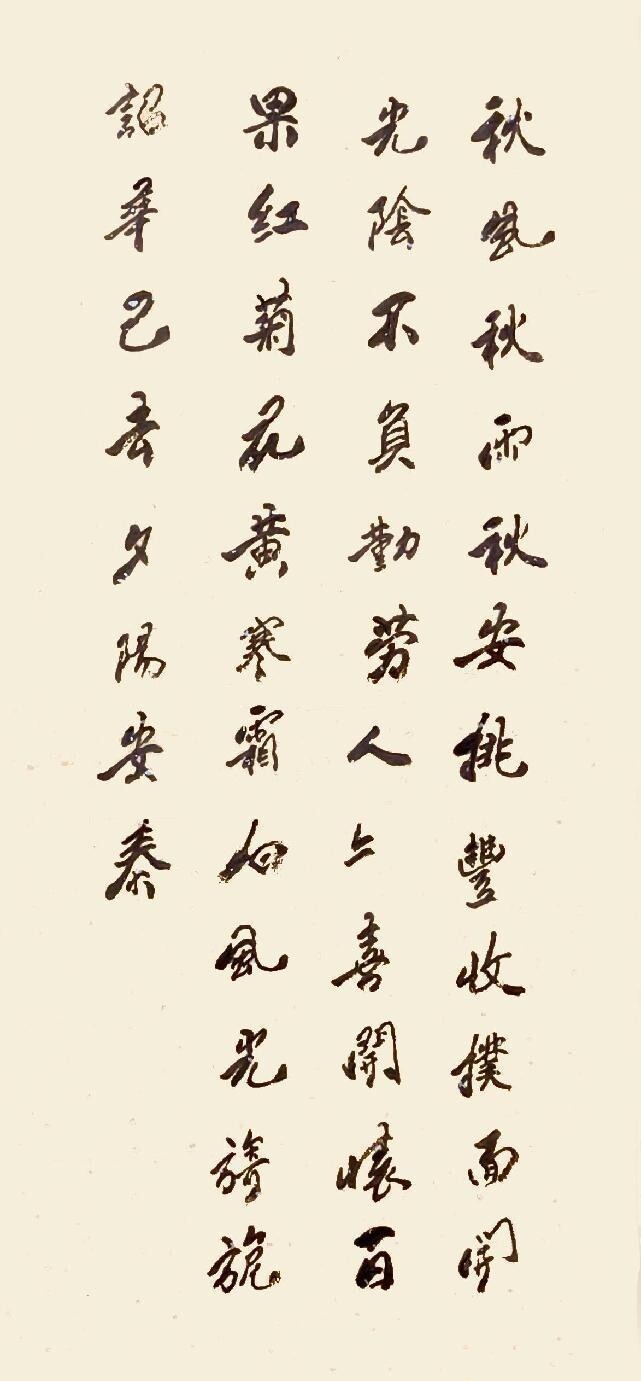 秋風秋雨秋安挑豐收撲面開
光陰不負勤勞人上喜開懷百
果紅菊花黃寒霜風光旖旎
詔華已去夕陽安泰